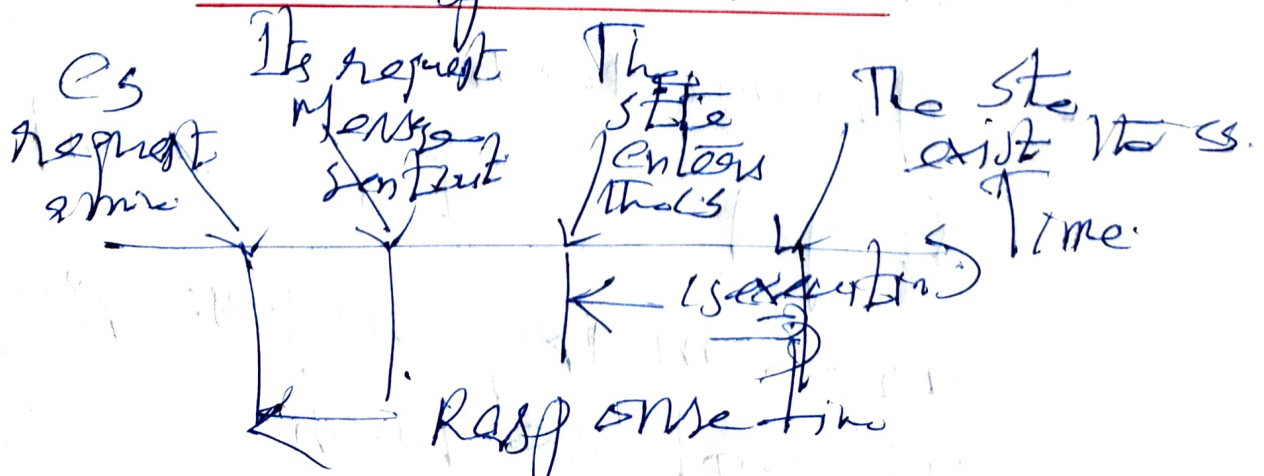 CS
request
arrive
Its request
Message
sent out
The
site
enters
the CS
The site
exist the CS.
Time.
CS execution
Response time